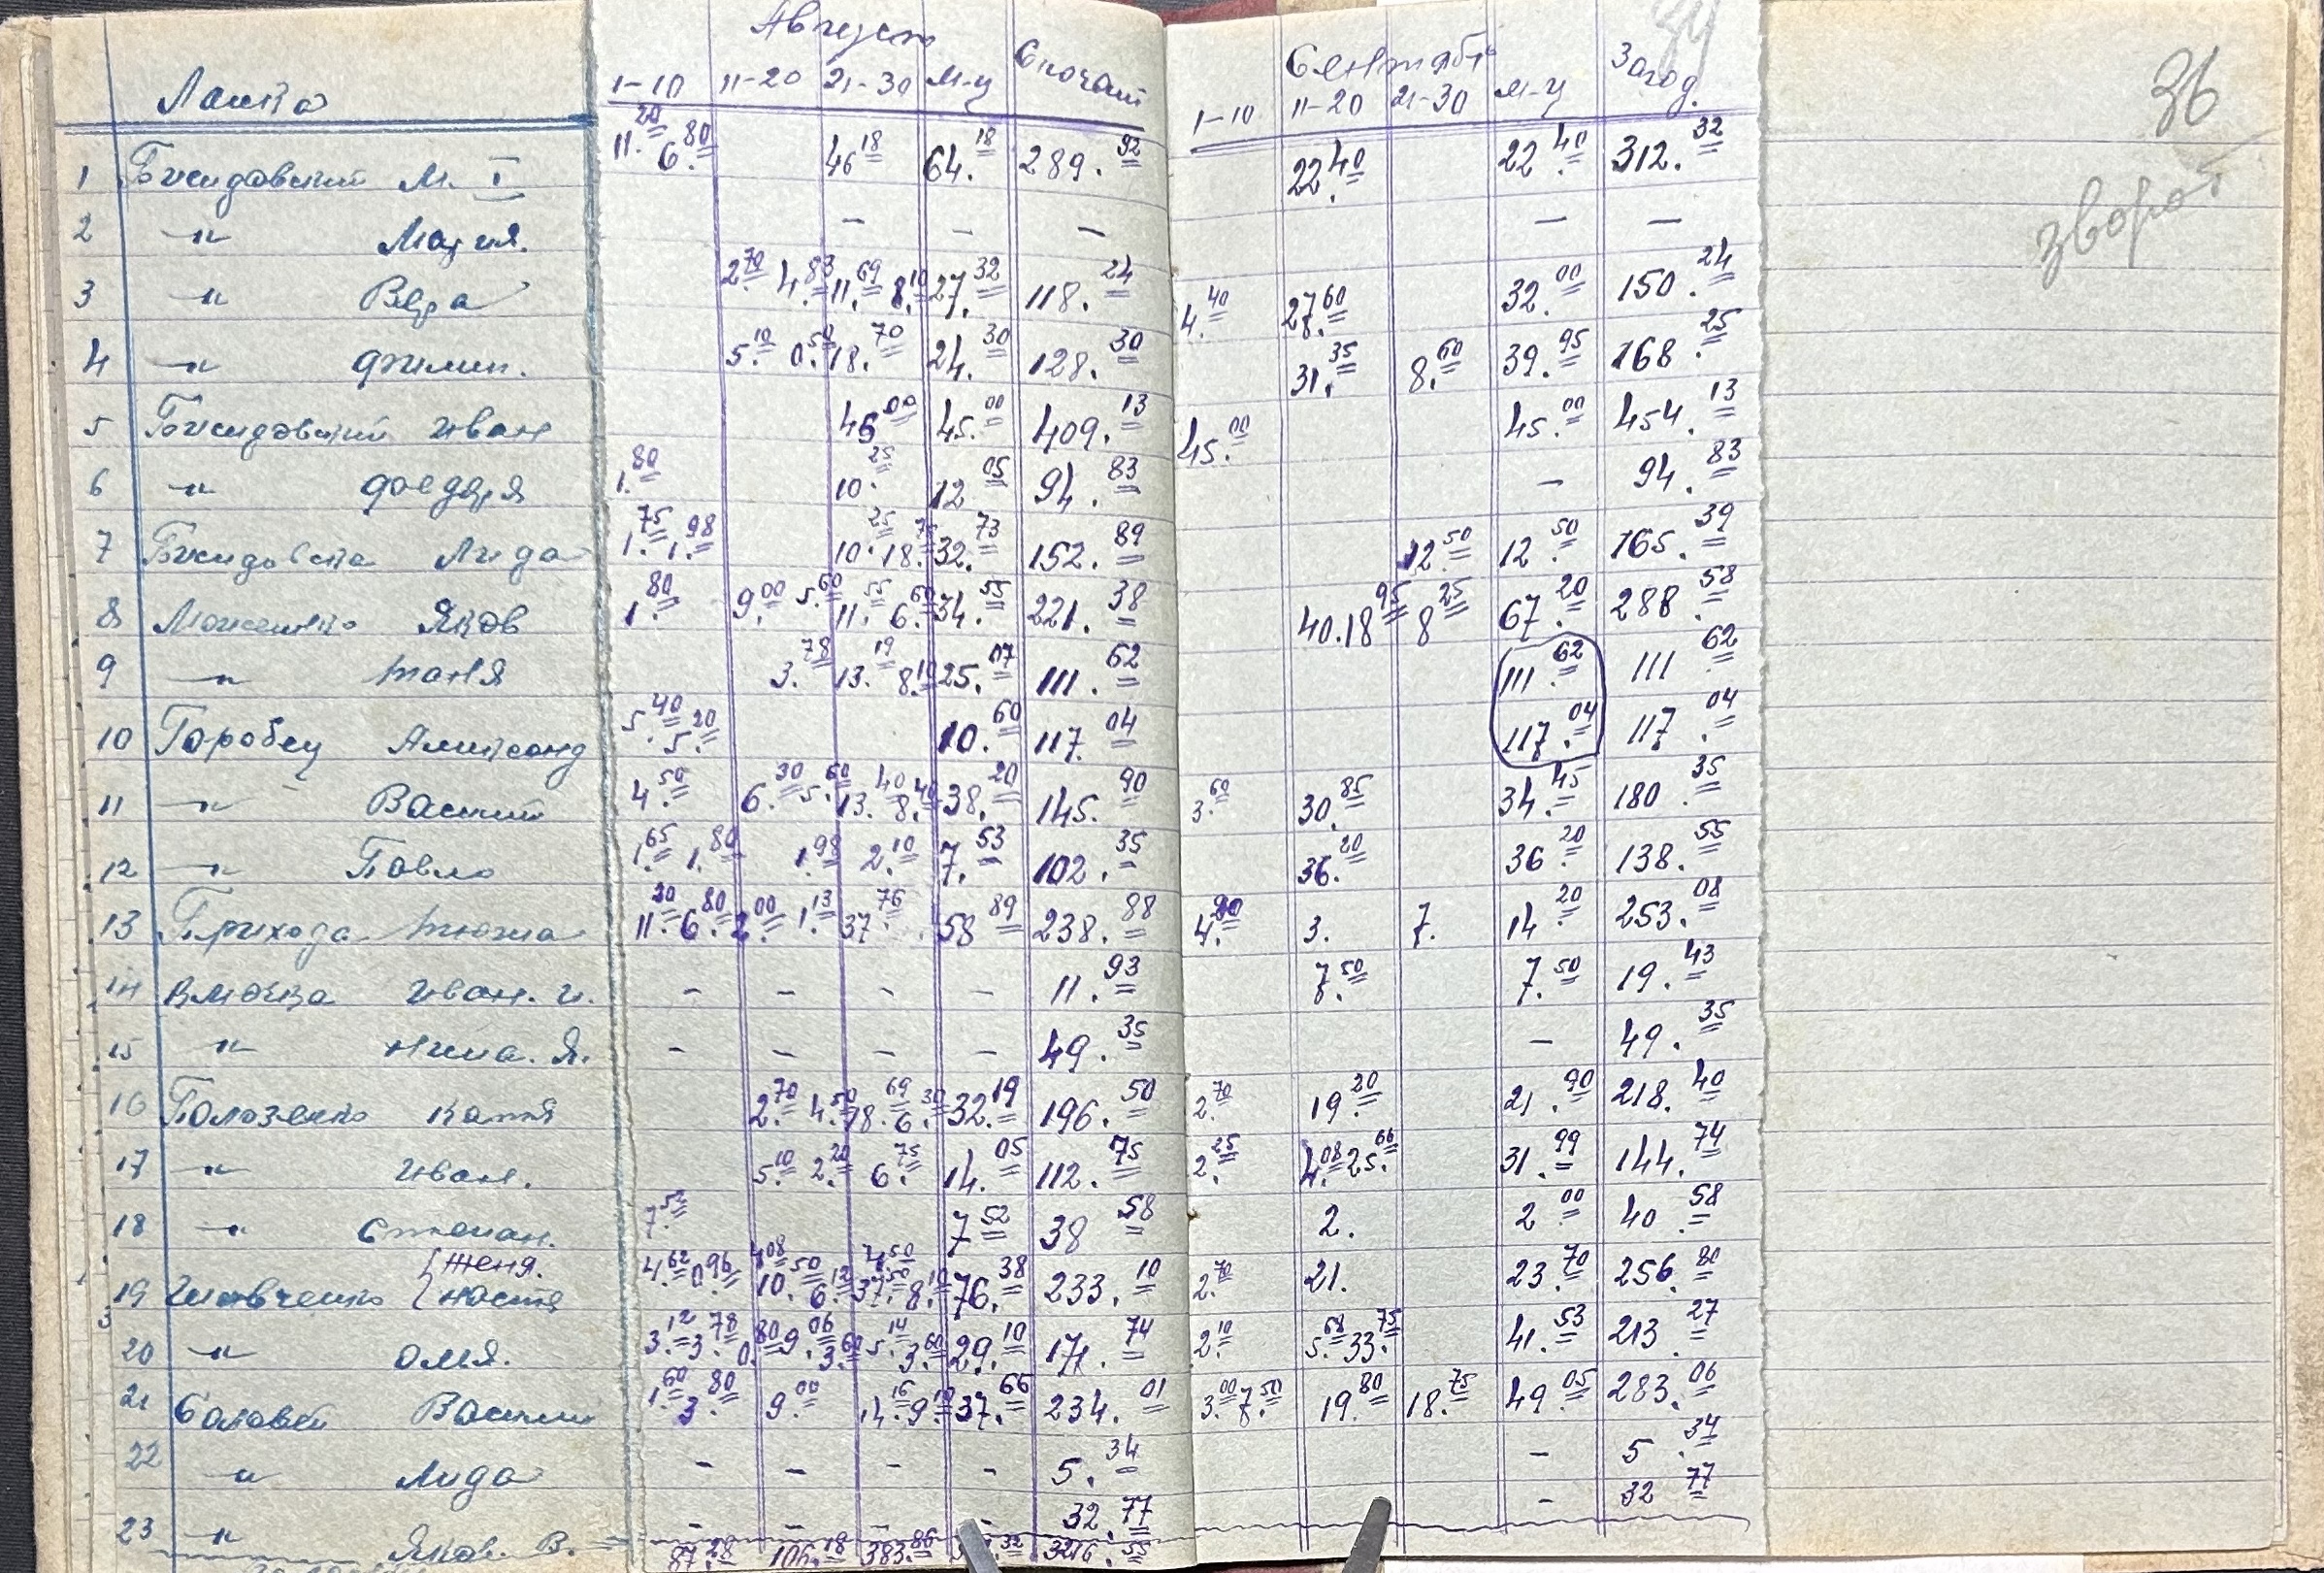 Август Спочат. Сентябрь Загод.
Ланка 1-10 11-20 21-30 М-ц 1-10 11-20 21-30 М-ц
36
зворот
1 М. I 11.20 6.80 46.18 64.18 289.92 22.40 22.40 312.32
2 -"- Мария. - - - - -
3 -"- Вера 2.70 4.83 11.69 8.10 27.32 118.24 4.40 27.60 32.00 150.24
4 -"- Филип. 5.10 0.50 18.70 24.30 128.30 31.35 8.60 39.95 168.25
5 Иван 45.00 45.00 409.13 45.00 45.00 454.13
6 -"- 1.80 10.25 12.05 94.83 - 94.83
7 Лида 1.75 1.98 10.25 18.75 32.73 152.89 12.50 12.50 165.39
8 Яков 1.80 9.00 5.60 11.55 6.60 34.55 221.38 40.18.95 8.25 67.20 288.58
9 -"- Таня 3.78 13.19 8.10 25.07 111.62 111.62 111.62
10 Горобец 5.40 5.20 10.60 117.04 117.04 117.04
11 -"- Василий 4.50 6.30 5.60 13.40 8.40 38.20 145.90 3.60 30.85 34.45 180.35
12 -"- Павло 1.65 1.80 1.98 2.10 7.53 102.35 36.20 36.20 138.55
13 Прихода 11.20 6.80 2.00 1.13 37.76 58.89 238.88 4.20 3. 7. 14.20 253.08
14 Иван. И. - - - - 11.93 7.50 7.50 19.43
15 -"- Нина. Я. - - - - 49.35 - 49.35
16 Катя 2.70 4.50 18.69 6.30 32.19 196.50 2.70 19.20 21.90 218.40
17 -"- Иван. 5.10 2.20 6.75 14.05 112.75 2.25 4.08 25.66 31.99 144.74
18 -"- Степан. 7.52 7.52 38.58 2. 2.00 40.58
Женя.
19 Настя 4.62 0.96 4.08 10.50 6.12 4.50 37.50 8.10 76.38 233.10 2.70 21. 23.70 256.80
20 -"- Оля. 3.12 3.78 0.80 9.06 3.60 5.14 3.60 29.10 171.74 2.10 5.68 33.75 41.53 213.27
21 Соловей Василий 1.60 3.80 9.00 14.16 9.10 37.66 234.01 3.00 7.50 19.80 18.75 49.05 283.06
22 -"- Лида - - - - 5.34 - 5.34
23 -"- Яков. В. - - - - 32.77 - 32.77
87.28 106.18 383.86 3216.55